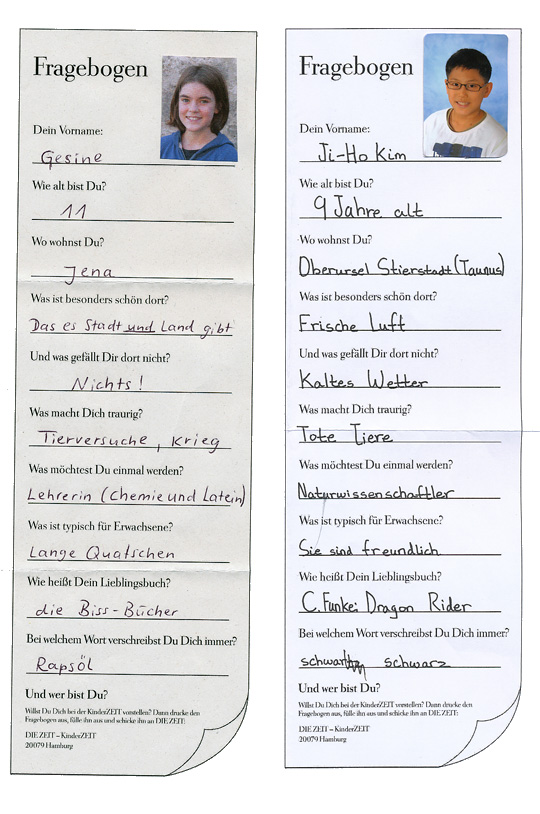 Fragebogen
Dein Vorname:
Gesine
Wie alt bist Du?
11
Wo wohnst Du?
Jena
Was ist besonders schön dort?
Das es Stadt und Land gibt
Und was gefällt Dir dort nicht?
Nichts!
Was macht Dich traurig?
Tierversuche, Krieg
Was möchtest Du einmal werden?
Lehrerin (Chemie und Latein)
Was ist typisch für Erwachsene?
Lange Quatschen
Wie heißt Dein Lieblingsbuch?
die Biss-Bücher
Bei welchem Wort verschreibst Du Dich immer?
Rapsöl
Und wer bist Du?
Willst Du Dich bei der KinderZEIT vorstellen? Dann drucke den
Fragebogen aus, fülle ihn aus und schicke ihn an DIE ZEIT:
DIE ZEIT – KinderZEIT
20079 Hamburg
Fragebogen
Dein Vorname:
Ji-Ho Kim
Wie alt bist Du?
9 Jahre alt
Wo wohnst Du?
Oberursel Stierstadt (Taunus)
Was ist besonders schön dort?
Frische Luft
Und was gefällt Dir dort nicht?
Kaltes Wetter
Was macht Dich traurig?
Tote Tiere
Was möchtest Du einmal werden?
Naturwissenschaftler
Was ist typisch für Erwachsene?
Sie sind freundlich
Wie heißt Dein Lieblingsbuch?
C. Funke: Dragon Rider
Bei welchem Wort verschreibst Du Dich immer?
schwarz
Und wer bist Du?
Willst Du Dich bei der KinderZEIT vorstellen? Dann drucke den
Fragebogen aus, fülle ihn aus und schicke ihn an DIE ZEIT:
DIE ZEIT – KinderZEIT
20079 Hamburg